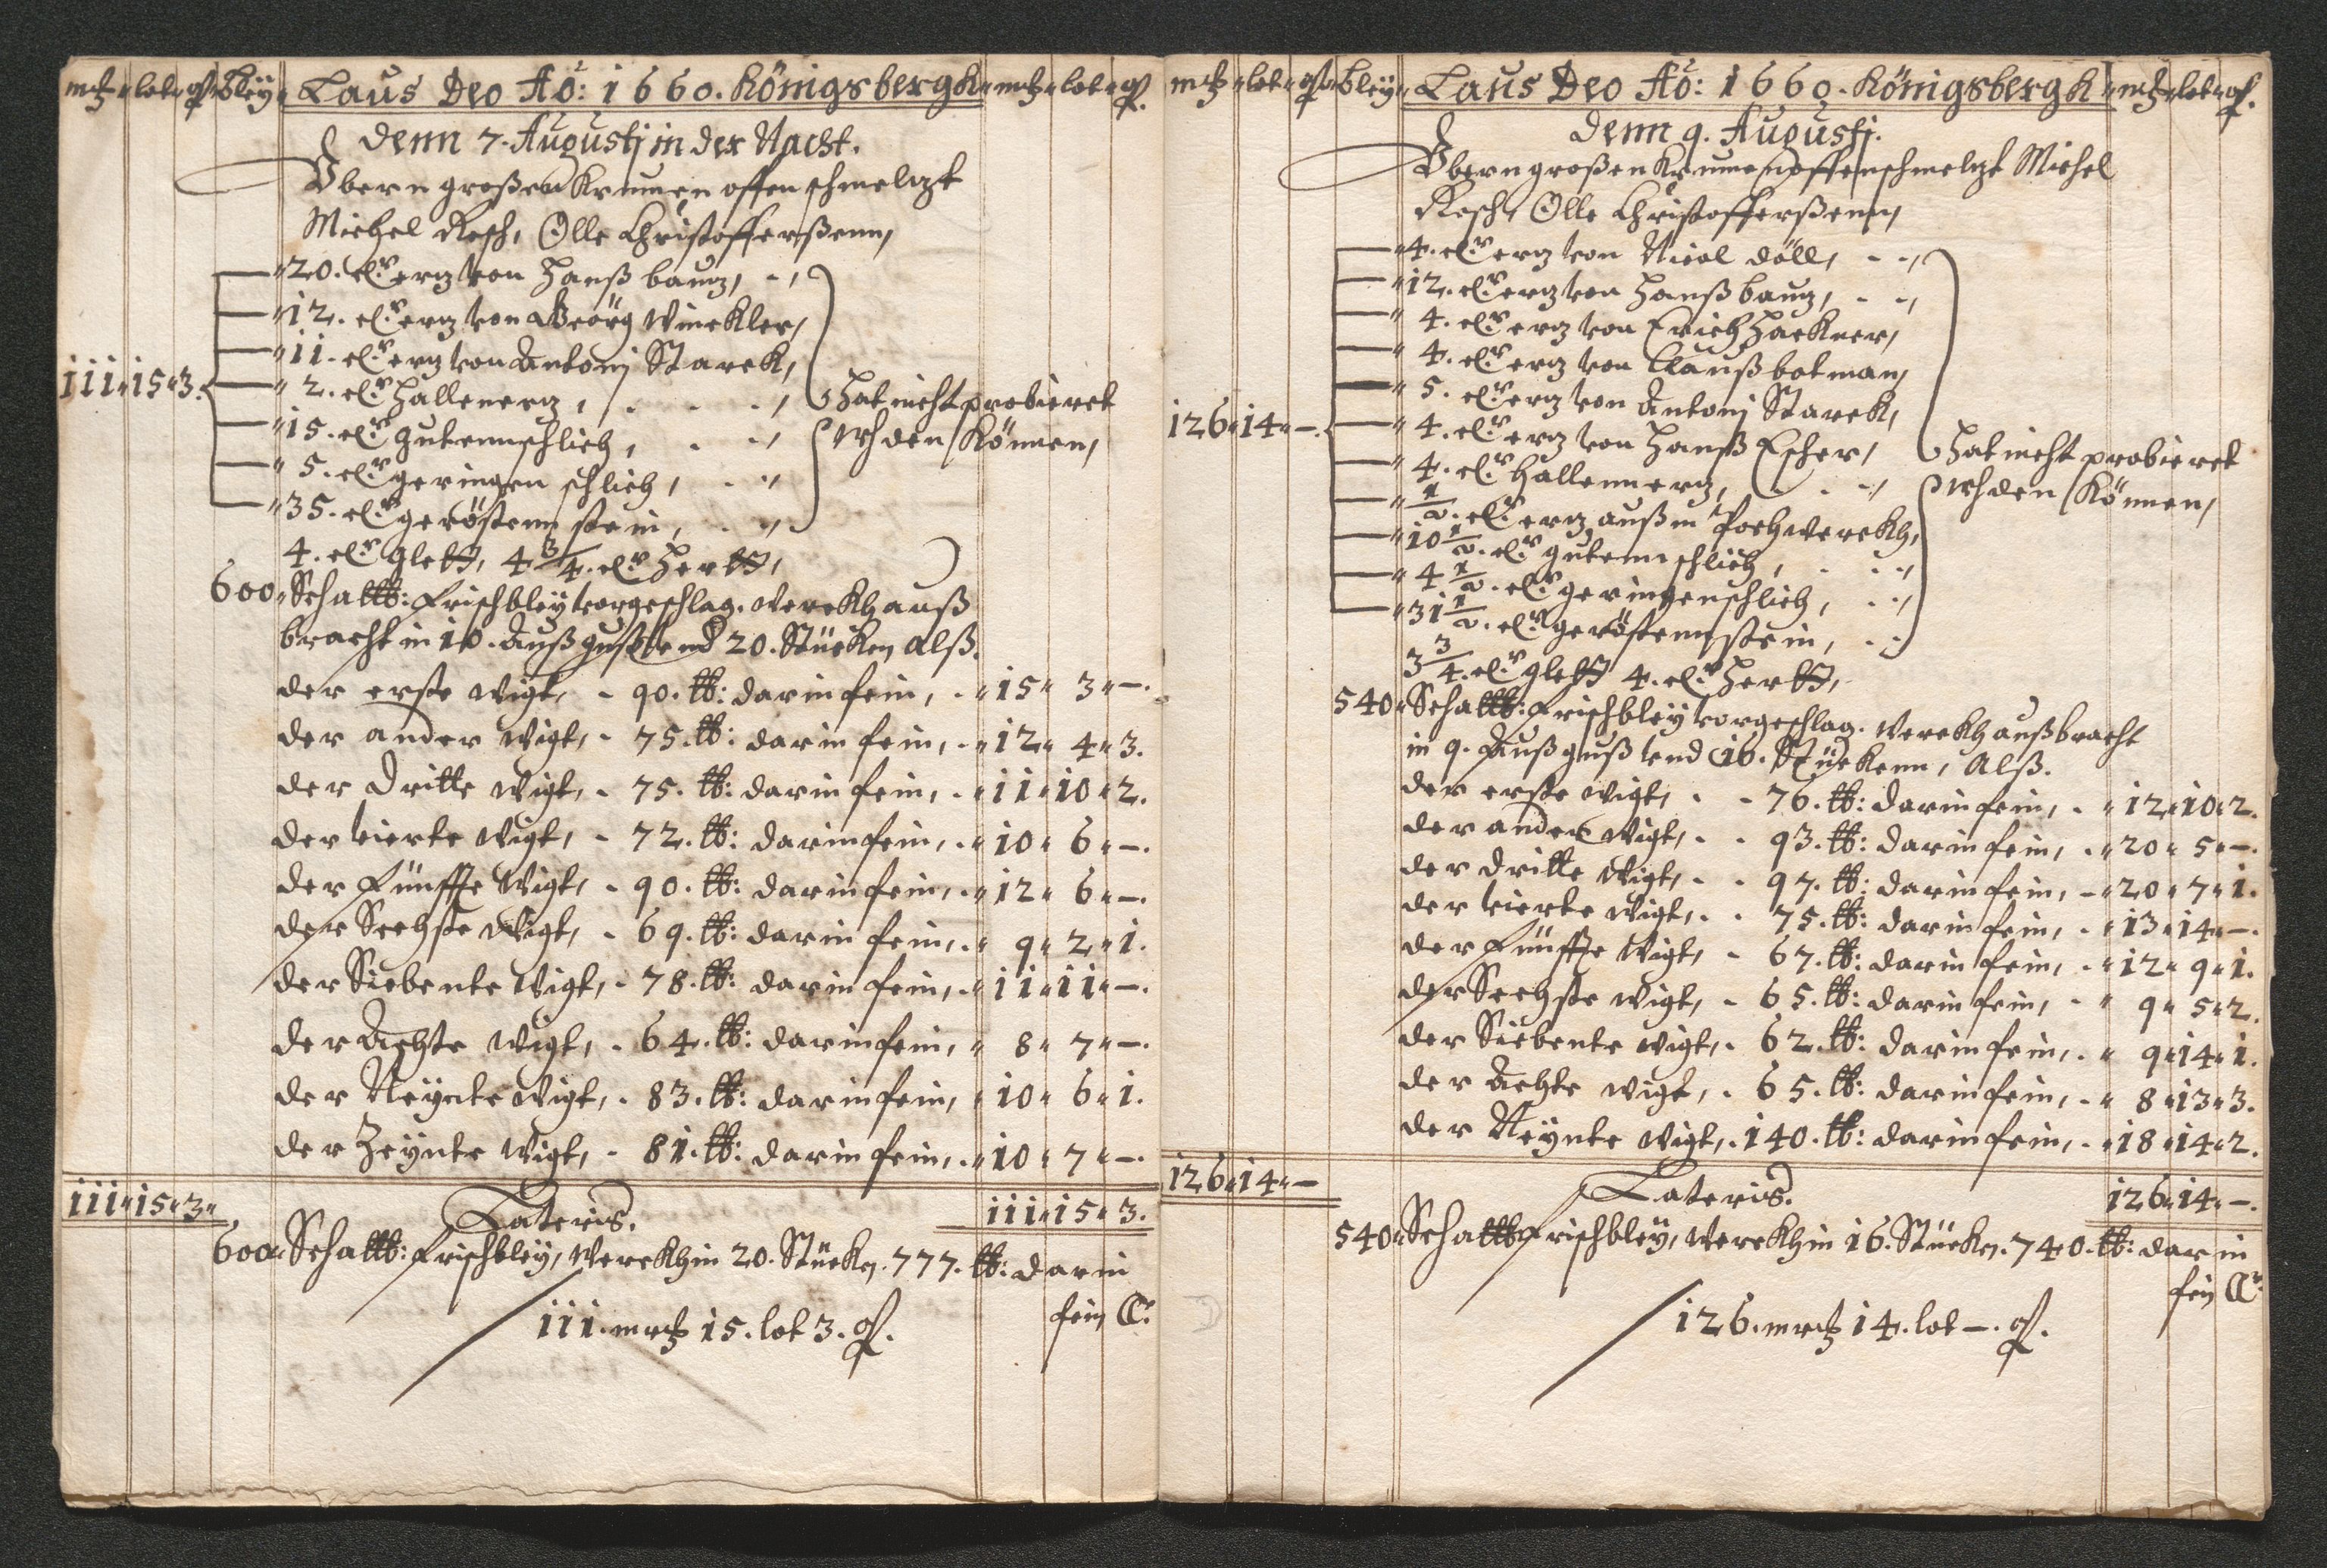 mrk lot q bley Laus Deo Ao: 1660. Königsbergk mrk lot q.
Denn 7. Augustj in der Nacht.
Vbern großen Krummen offen schmeltzt
Michel Resch, Olle Christofferßenn,
20. Clr ertz von Hanß bautz,
12. Clr ertz von Geörg Winckler,
11. Clr ertz von Antonj Starck,
2. Clr Hallenertz,
15. Clr gutennschlich,
5. Clr geringen schlich,
35. Clr geröstenn stein,
111 15 3.
Hat nicht probieret
wehden Können,
4. Clr glett, 4 3/4. Clr Hertt,
600 Schalttb: Frischbley vorgeschlag. Werckh auß
bracht in 10. Außguß vnd 20. Stücken Alß.
der erste Wigt, 90. tb: darin fein, 15 3 –.
der ander Wigt, 75. tb: darin fein, 12 4 3.
der Dritte Wigt, 75. tb: darin fein, 11 10 2.
der vierte Wigt, 72. tb: darin fein, 10 6 –.
der Fünffte Wigt, 90. tb: darin fein, 12 6 –.
der Sechste Wigt, 69. tb: darin fein, 9 2 1.
der Siebente Wigt, 78. tb: darin fein, 11 11 –.
der Achte Wigt, 64. tb: darin fein, 8 7 –.
der Neynte Wigt, 83. tb: darin fein, 10 6 1.
der Zeynte Wigt, 81. tb: darin fein, 10 7 –.
111 15 3 Lateris. 111 15 3.
600 Schalttb: Frischbley, Werckh in 20. Stücken. 777. tb: darin
fein
111. mrk 15. lot 3. q.
mrk lot q bley Laus Deo Ao: 1660. Königsbergk mrk lot q.
Denn 9. Augustj.
Vbern großen Krummen offen schmeltzt Michel
Resch, Olle Christofferßenn,
4. Clr ertz von Nicol döll,
12. Clr ertz von Hanß bautz,
4. Clr ertz von Erich Hackner,
4. Clr ertz von Clauß botman,
5. Clr ertz von Antonj Starck,
4. Clr ertz von Hanß Escher,
4. Clr Hallennertz,
1/2. Clr ertz außm Pochwerckh,
10 1/2. Clr gutenn schlich,
4 1/2. Clr geringenschlich,
31 1/2. Clr geröstenn stein,
126 14 –.
Hat nicht probieret
wehden Können,
3 3/4. Clr glett 4. Clr Hertt,
540 Schalttb: Frischbley vorgeschlag. Werckh außbracht
in 9. Außguß vnd 16. Stückenn, Alß.
der erste Wigt, 76. tb: darin fein, 12 10 2.
der ander Wigt, 93. tb: darin fein, 20 5 –.
der dritte Wigt, 97. tb: darin fein, 20 7 1.
der vierte Wigt, 75. tb: darin fein, 13 14 –.
der Fünffte Wigt, 67. tb: darin fein, 12 9 1.
der Sechste Wigt, 65. tb: darin fein, 9 5 2.
der Siebente Wigt, 62. tb: darin fein, 9 14 1.
der Achte Wigt, 65. tb: darin fein, 8 13 3.
der Neynte Wigt, 140. tb: darin fein, 18 14 2.
126 14 – Lateris. 126 14 –.
540 Schalttb Frischbley, Werckh in 16. Stücken. 740. tb: darin
fein
126. mrk 14. lot –. q.